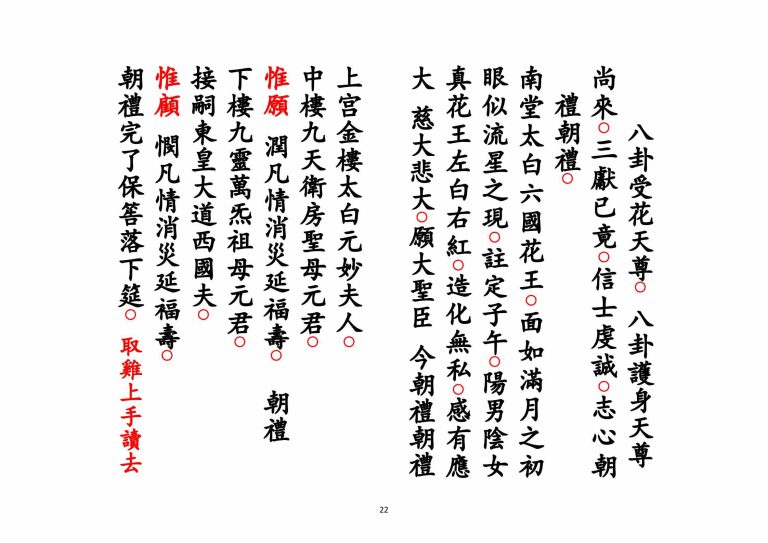 八卦受花天尊。 八卦護身天尊
尚來。三獻已竟。信士虔誠。志心朝
禮朝禮。
南堂太白六國花王。面如滿月之初
眼似流星之現。註定子午。陽男陰女
真花王左白右紅。造化無私。感有應
大 慈大悲大。願大聖臣 今朝禮朝禮
上宮金樓太白元妙夫人。
中樓九天衛房聖母元君。
惟願 潤凡情消災延福壽。 朝禮
下樓九靈萬炁祖母元君。
接嗣東皇大道西國夫。
惟顧 憫凡情消災延福壽。
朝禮完了保筶落下筵。 取雞上手讀去
22